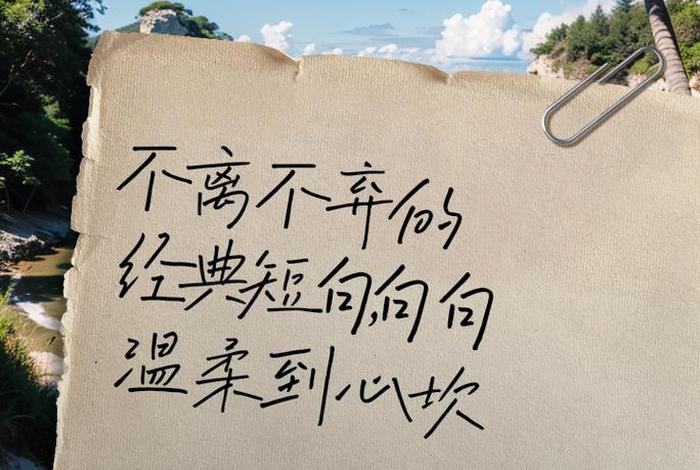 不离不弃的
经典短句,句句
温柔到心坎